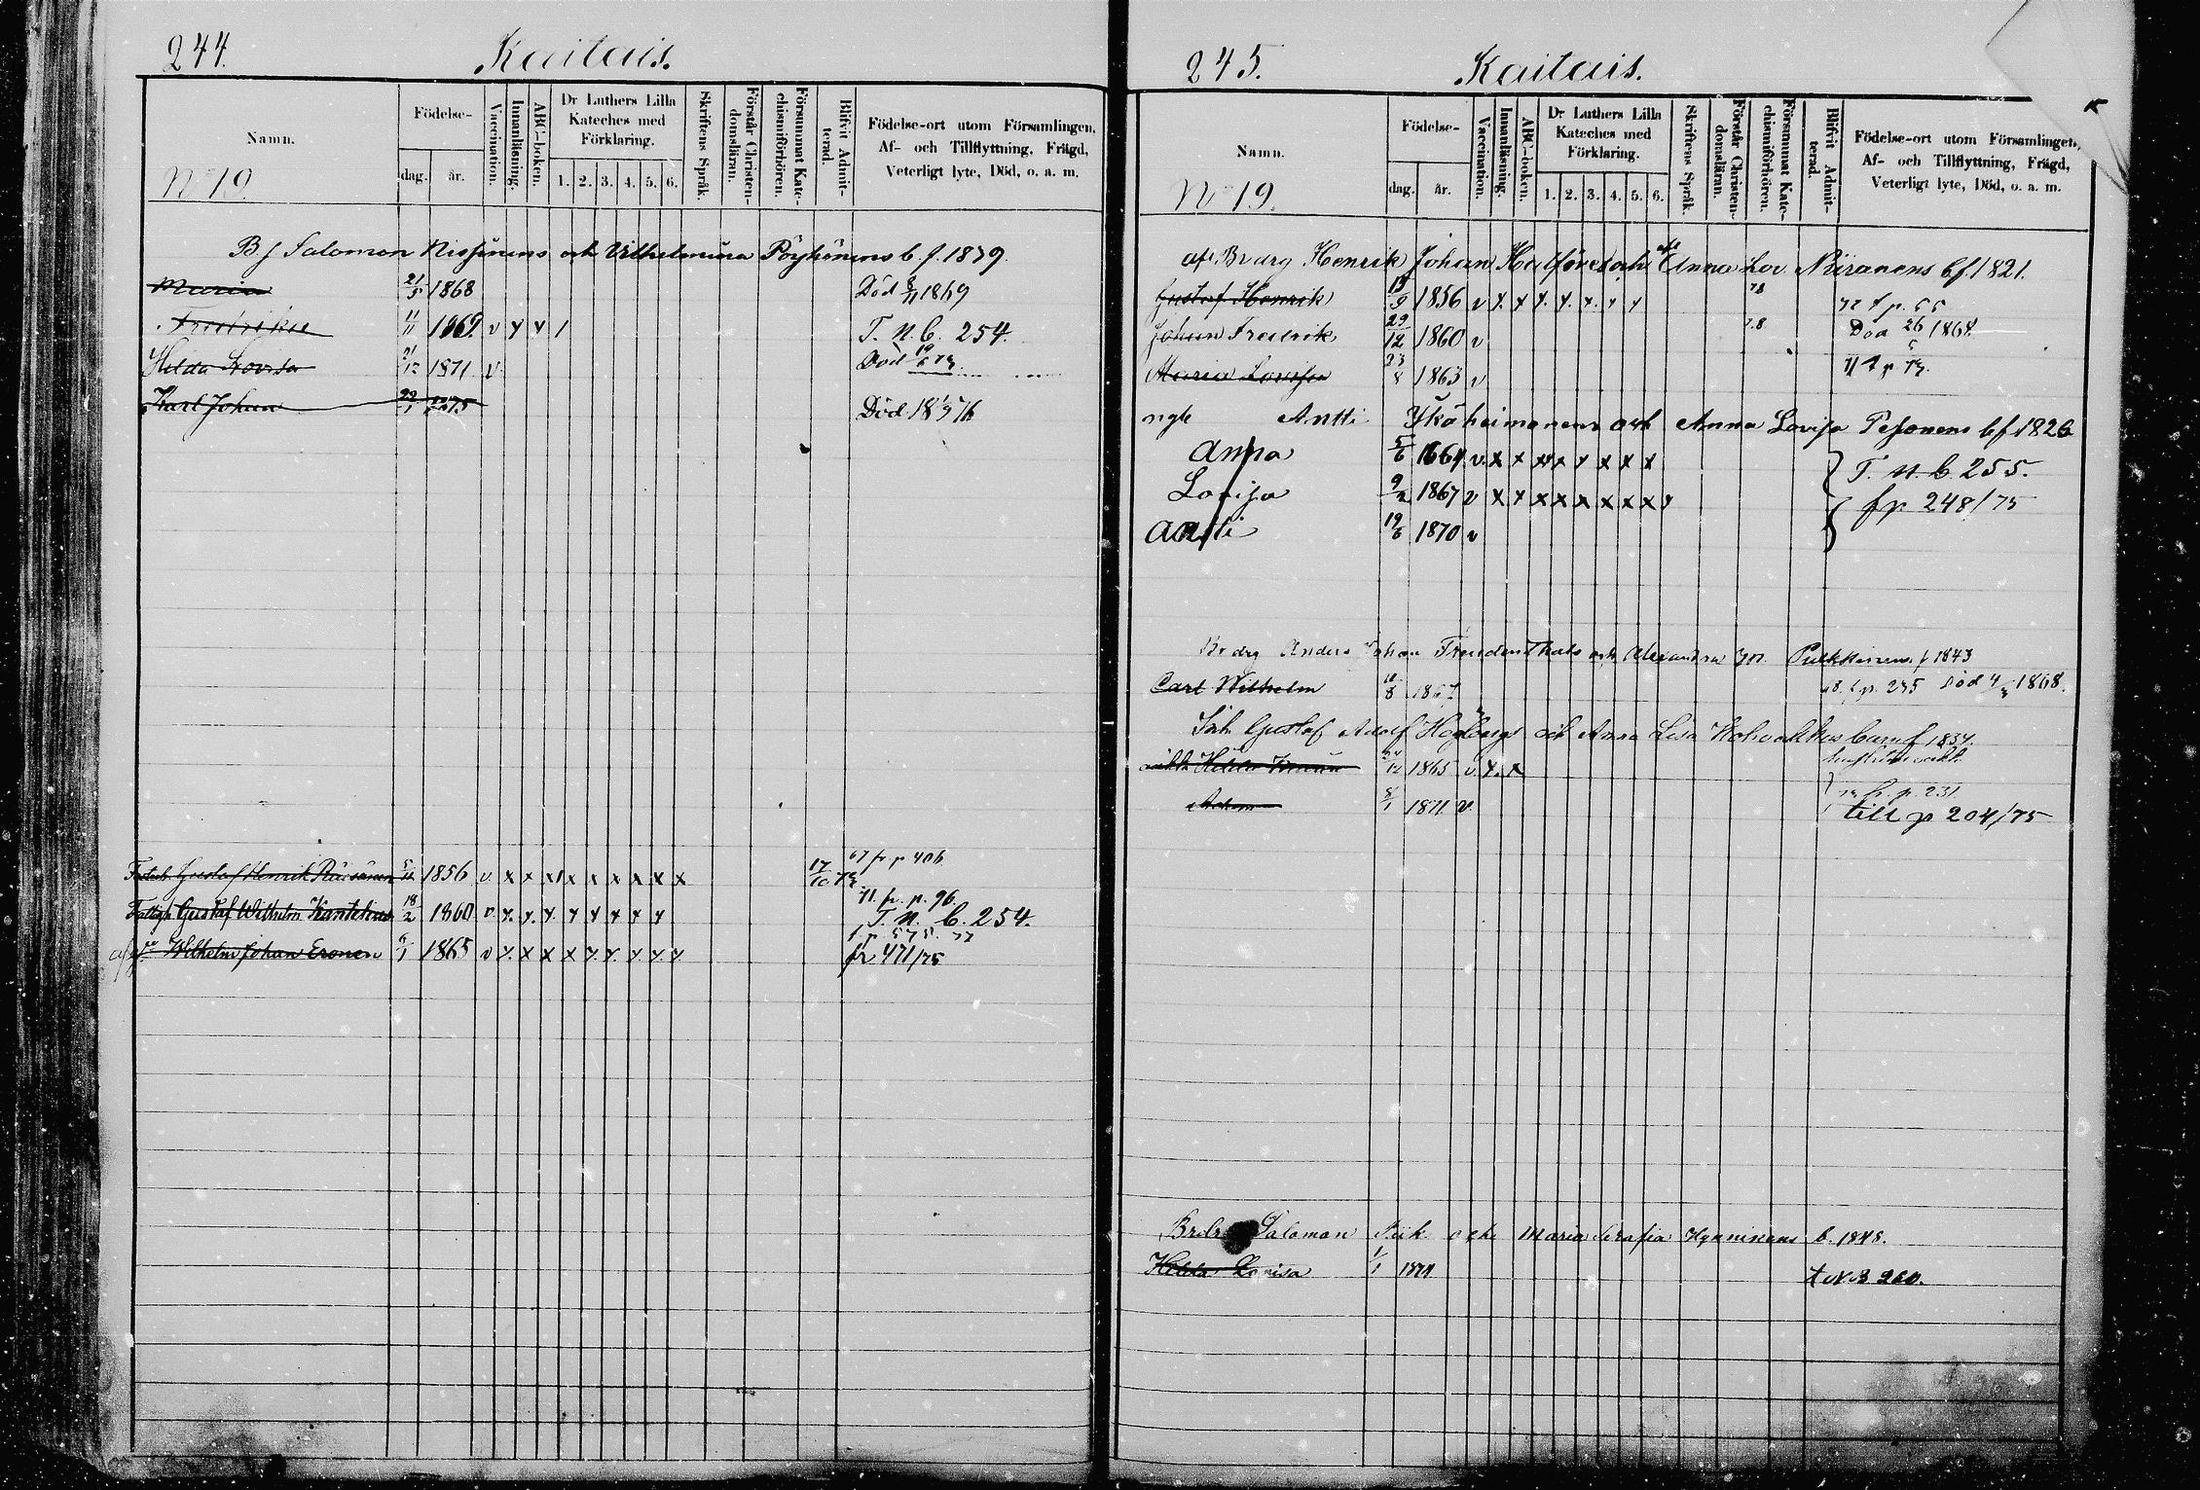 244.
Kaitais.
Namn.
Födelse-
dag.
år.
Vaccination.
Innanläsning.
ABC-boken.
Dr Luthers Lilla
Kateches med
Förklaring.
1. 2. 3. 4. 5. 6.
Skriftens Språk.
Förstår Christen-
domsläran.
Försummat Kate-
chismiförhören.
Blifvit Admit-
terad.
Födelse-ort utom Församlingen,
Af- och Tillflyttning, Frägd,
Veterligt lyte, Död, o. a. m.
No 19.
Bj Salomon Nissinens och Vilhelmina Pöyhönens b. f. 1839.
Maria 21/5 1868 Död 8/11 1869
Fredrika 11/11 1869 v x x 1 T. N. B. 254.
Hilda Lovisa 21/12 1871 v Död 19/6 73
Karl Johan 22/1 1875 Död 18 1/3 76
67 fr p 406
Gustaf Henrik Räisänen 1856 v x x x x x x x x x 17/10 73
71. fr. p. 96.
Gustaf Wilhelm Kantelius 18/2 1860 v x x x x x x x x T. N. B. 254.
Wilhelm Johan Eronen 6/1 1865 v x x x x x x x x x fr 471/75
245.
Kaitais.
Namn.
Födelse-
dag.
år.
Vaccination.
Innanläsning.
ABC-boken.
Dr Luthers Lilla
Kateches med
Förklaring.
1. 2. 3. 4. 5. 6.
Skriftens Språk.
Förstår Christen-
domsläran.
Försummat Kate-
chismiförhören.
Blifvit Admit-
terad.
Födelse-ort utom Församlingen,
Af- och Tillflyttning, Frägd,
Veterligt lyte, Död, o. a. m.
No 19.
Henrik Johan och Anna Lov Niiranens b f 1821.
Gustaf Henrik 1856 v x x x x x x x 78 72 f p. 55
Johan Fredrik 29/12 1860 v 78 Död 26/5 1868
Maria Lovisa 23/8 1863 v
Antti Ikäheimonens och Anna Lovisa Pesonens b f 1826
Anna 5/6 1864 v x x x x x x x x T. N. B. 255.
Lovisa 9/2 1867 v x x x x x x x x f p 248/75
Antti 19/6 1870 v
Anders Johan Freudenthals och Alexandra Pulkkinens f 1843
Carl Wilhelm 1867 f. p. 235 Död 4/3 1868.
Gustaf Adolf Högbergs och Anna Lisa barn f 1834.
Hilda 1865 v. x. x
Adam 8/1 1871 v fr. p. 231
till p 204/75
Salomon och Maria Serafia Hynninens b. 1848.
Hilda Lovisa 1/1 1871 t N B 260.